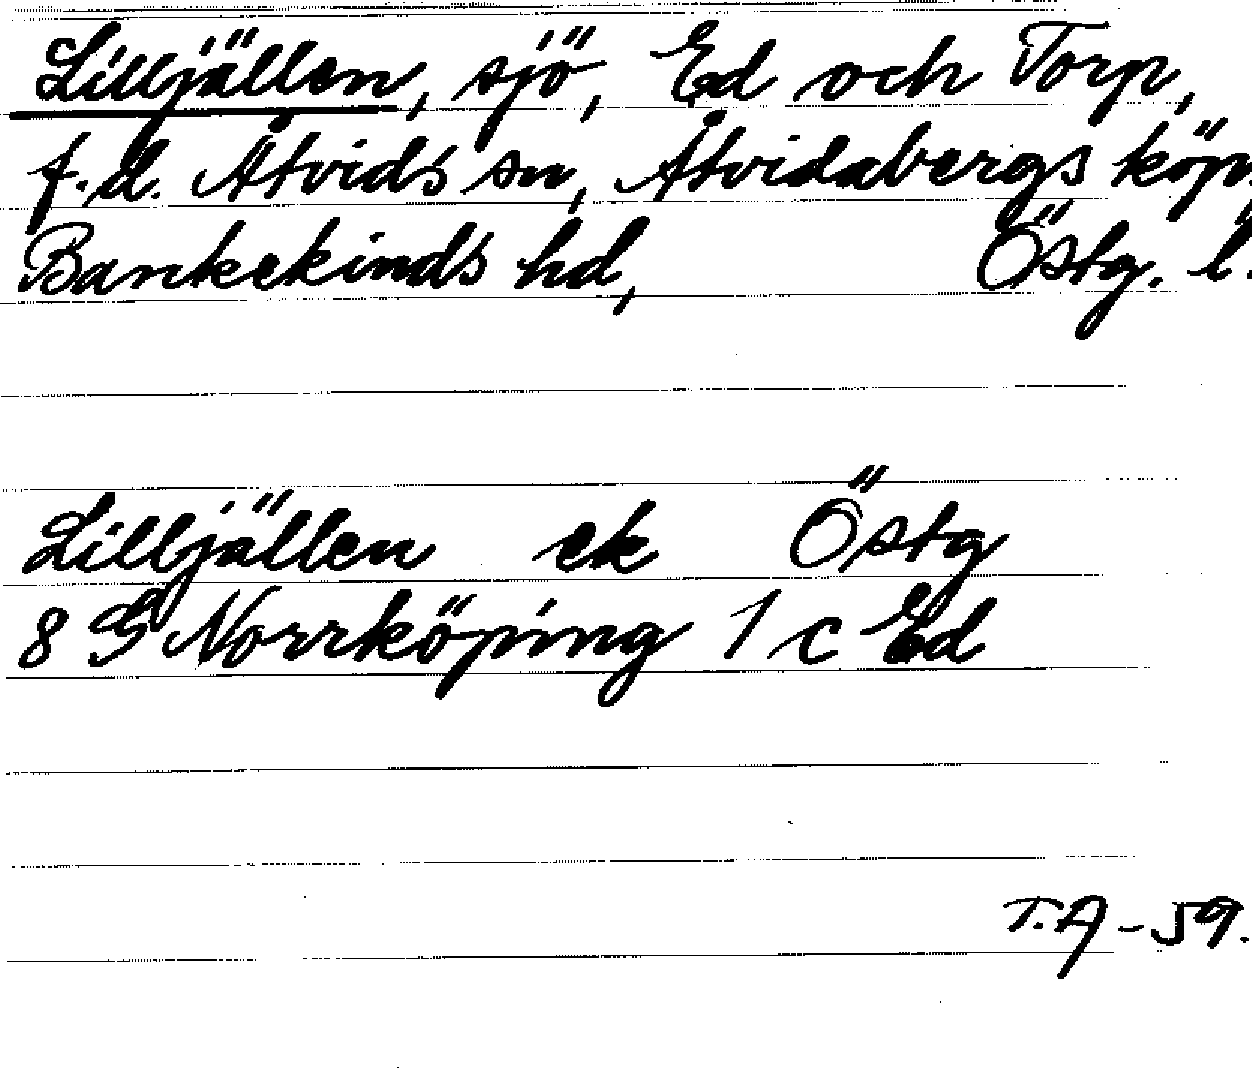 Lilljällen, sjö, Ed och Torp,
f.d. Åtvids sn, Åtvidabergs köp.
Bankekinds hd, Östg. l.
Lilljällen ek Östg
8 G Norrköping 1 c Ed
T.A-59.